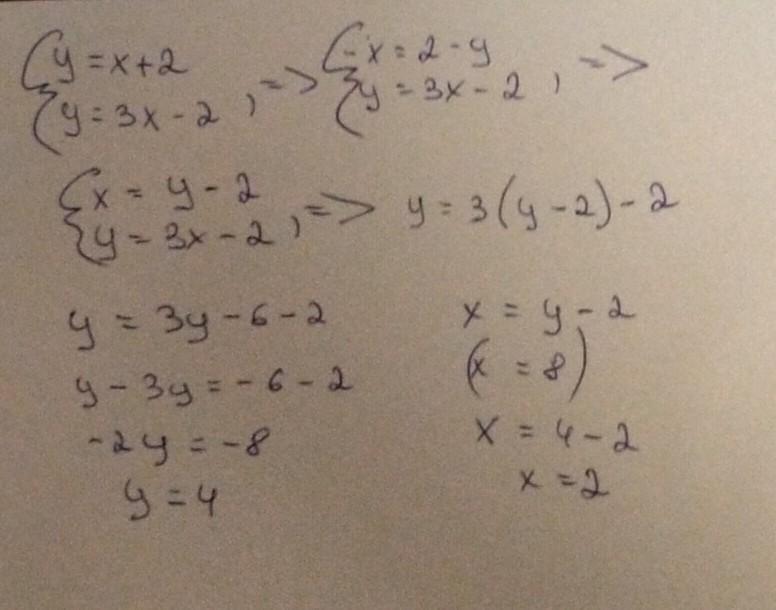 {y = x+2 {y = 3x - 2 , => {-x = 2 - y {y = 3x - 2 , =>
{x = y - 2 {y = 3x - 2 , => y = 3(y - 2) - 2
y = 3y - 6 - 2
y - 3y = - 6 - 2
-2y = -8
y = 4
x = y - 2
(x = 8)
x = 4 - 2
x = 2